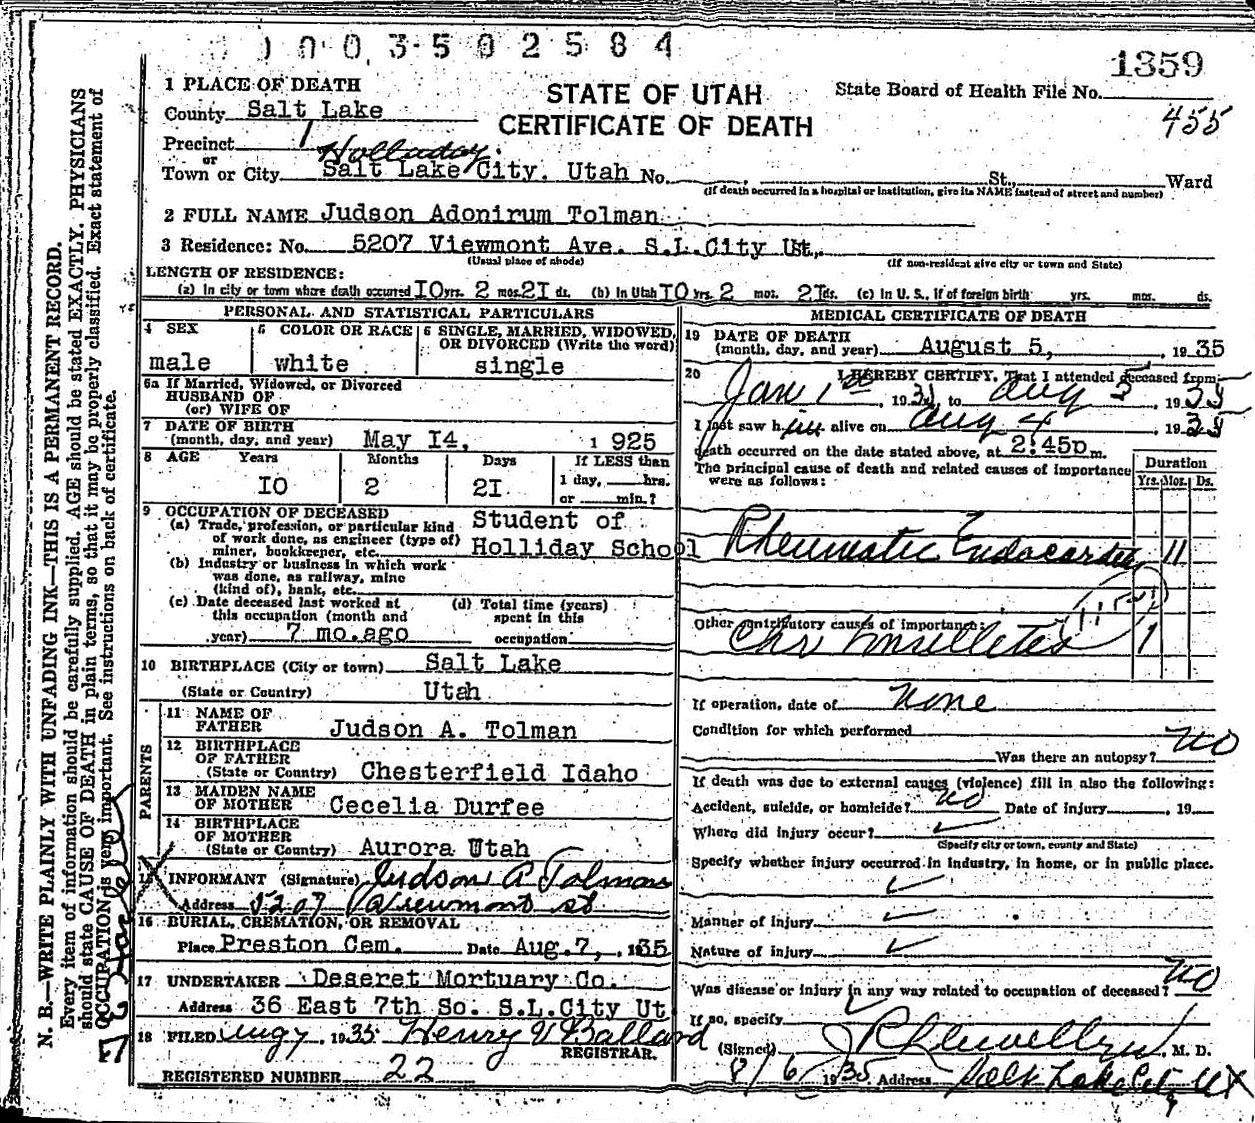 1003502584
1359
STATE OF UTAH
CERTIFICATE OF DEATH
State Board of Health File No.
455
1 PLACE OF DEATH
County Salt Lake
Precinct 1
or Holladay.
Town or City Salt Lake City. Utah No. St., Ward
(If death occurred in a hospital or institution, give its NAME instead of street and number)
2 FULL NAME Judson Adonirum Tolman
3 Residence: No. 5207 Viewmont Ave. S.L.City Ut.
(Usual place of abode) (If non-resident give city or town and State)
LENGTH OF RESIDENCE:
(a) In city or town where death occurred IO yrs. 2 mos. 2I ds. (b) In Utah IO yrs. 2 mos. 2I ds. (c) In U. S., if of foreign birth yrs. mos. ds.
PERSONAL AND STATISTICAL PARTICULARS
4 SEX 5 COLOR OR RACE 6 SINGLE, MARRIED, WIDOWED, OR DIVORCED (Write the word)
male white single
6a If Married, Widowed, or Divorced
HUSBAND OF
(or) WIFE OF
7 DATE OF BIRTH
(month, day, and year) May I4, 1925
8 AGE Years Months Days If LESS than
IO 2 2I 1 day, hrs.
or min.?
9 OCCUPATION OF DECEASED
(a) Trade, profession, or particular kind of work done, as engineer (type of) miner, bookkeeper, etc. Student of Holliday School
(b) Industry or business in which work was done, as railway, mine (kind of), bank, etc.
(c) Date deceased last worked at this occupation (month and year) 7 mo.ago
(d) Total time (years) spent in this occupation
10 BIRTHPLACE (City or town) Salt Lake
(State or Country) Utah
PARENTS
11 NAME OF FATHER Judson A. Tolman
12 BIRTHPLACE OF FATHER
(State or Country) Chesterfield Idaho
13 MAIDEN NAME OF MOTHER Cecelia Durfee
14 BIRTHPLACE OF MOTHER
(State or Country) Aurora Utah
15 INFORMANT (Signature) Judson A Tolman
Address 5207 Viewmont st
16 BURIAL, CREMATION, OR REMOVAL
Place Preston Cem. Date Aug.7, 1935
17 UNDERTAKER Deseret Mortuary Co.
Address 36 East 7th So. S.L.City Ut
18 FILED Aug 7, 1935 Henry V Ballard
REGISTRAR.
REGISTERED NUMBER 22
MEDICAL CERTIFICATE OF DEATH
19 DATE OF DEATH
(month, day, and year) August 5, 1935
20 I HEREBY CERTIFY, That I attended deceased from
Jan 1st, 193 to Aug 5, 1935
I last saw him alive on Aug 4, 1935
death occurred on the date stated above, at 2:45p m.
The principal cause of death and related causes of importance were as follows:
Duration
Yrs. Mos. Ds.
Rheumatic Endocarditis 11
Other contributory causes of importance:
1
If operation, date of None
Condition for which performed
Was there an autopsy? No
If death was due to external causes (violence) fill in also the following:
Accident, suicide, or homicide? No Date of injury 19
Where did injury occur?
(Specify city or town, county and State)
Specify whether injury occurred in industry, in home, or in public place.
Manner of injury
Nature of injury
Was disease or injury in any way related to occupation of deceased? No
If so, specify
(Signed) J R Llewellyn, M. D.
8/6 1935 Address Salt Lake City, Ut
N. B.—WRITE PLAINLY WITH UNFADING INK—THIS IS A PERMANENT RECORD.
Every item of information should be carefully supplied. AGE should be stated EXACTLY. PHYSICIANS
should state CAUSE OF DEATH in plain terms, so that it may be properly classified. Exact statement of
OCCUPATION is very important. See instructions on back of certificate.